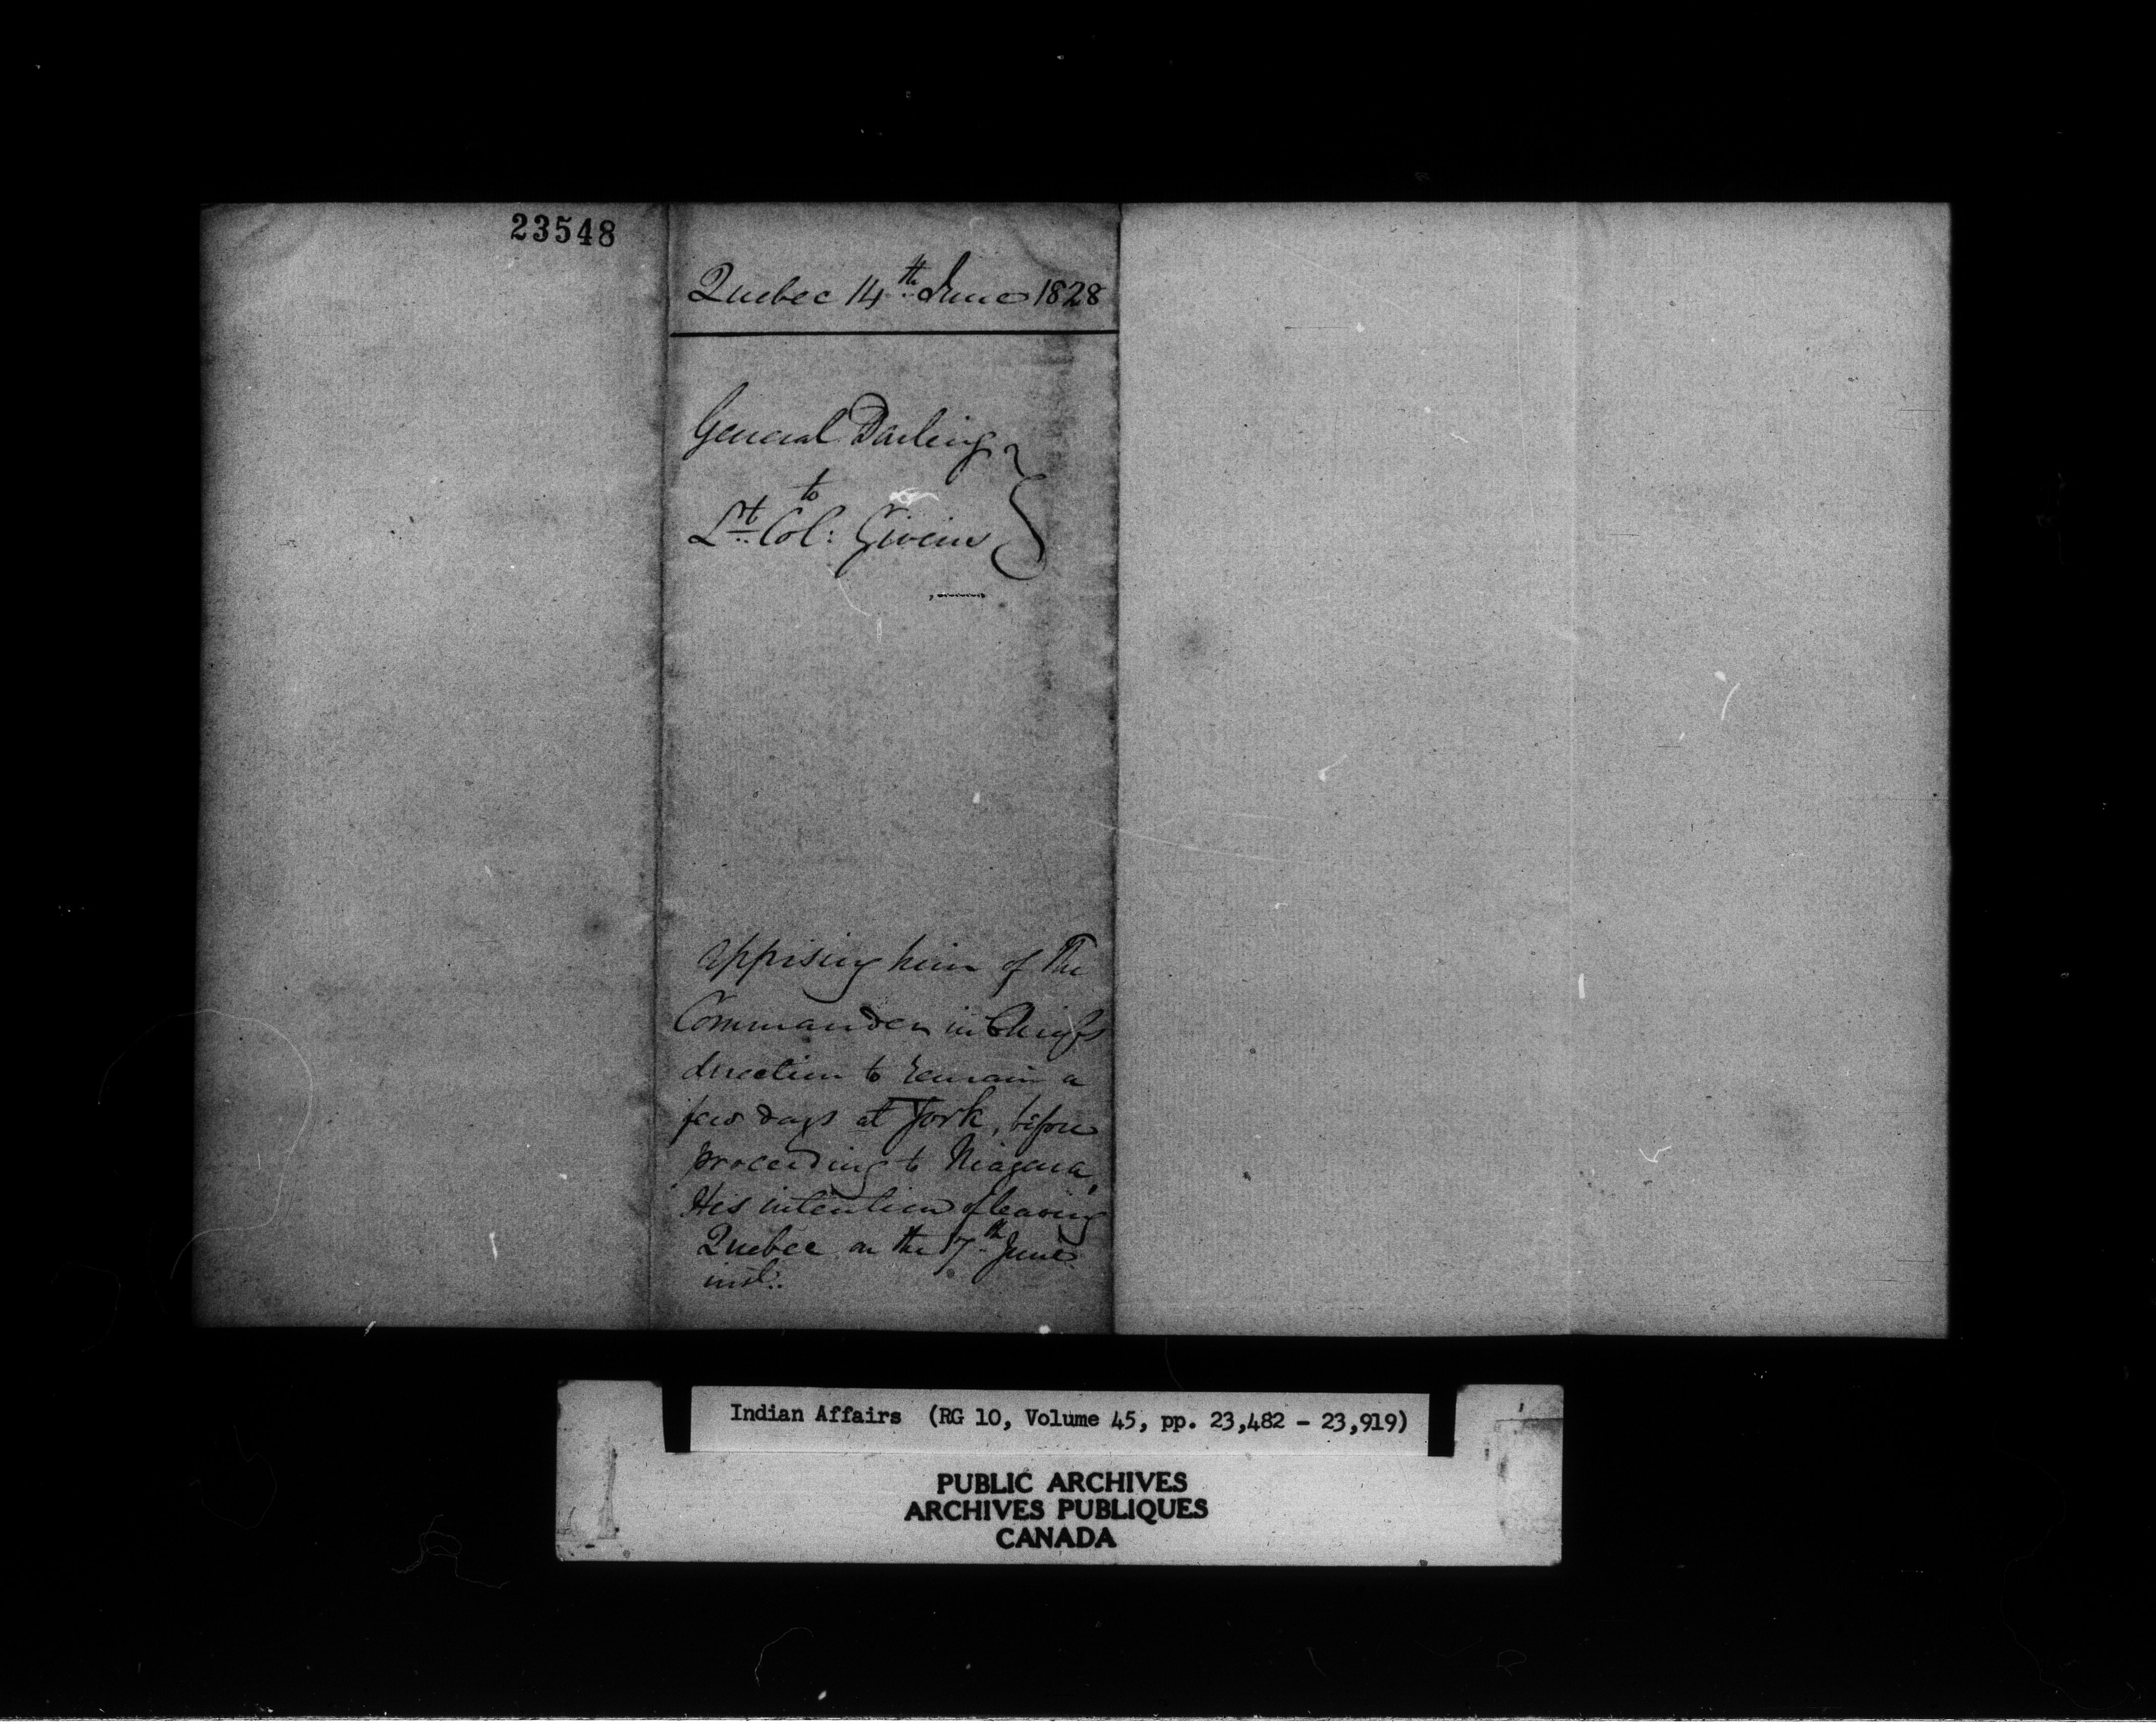 23548
Quebec 14th June 1828
General Darling
to
Lt. Col: Givins
Apprising him of The
Commander in Chiefs
direction to remain a
few days at York, before
proceeding to Niagara,
His intention of leaving
Quebec on the 17th June
inst:.
Indian Affairs (RG 10, Volume 45, pp. 23,482 - 23,919)
PUBLIC ARCHIVES
ARCHIVES PUBLIQUES
CANADA